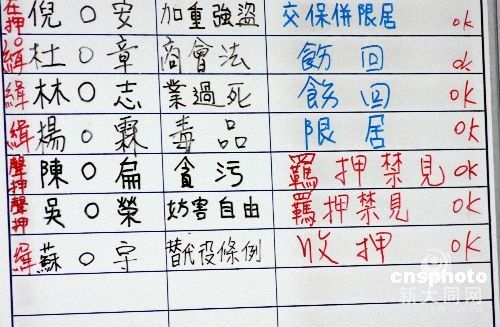 在押 倪○安 加重強盜 交保併限居 ok
緝 杜○章 商會法 飭回 ok
緝 林○志 業過死 飭回 ok
緝 楊○霖 毒品 限居 ok
聲押 陳○扁 貪污 羈押禁見 ok
聲押 吳○榮 妨害自由 羈押禁見 ok
緝 蘇○守 替代役條例 收押 ok
cnsphoto
新大同网